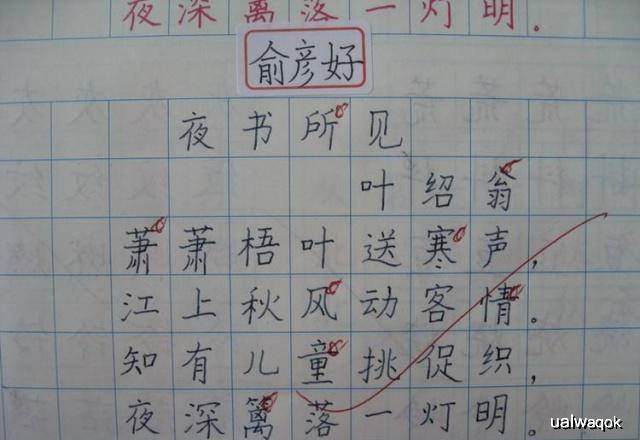 夜深篱落一灯明。
俞彦好
夜书所见
叶绍翁
萧萧梧叶送寒声，
江上秋风动客情。
知有儿童挑促织，
夜深篱落一灯明。
ualwaqok